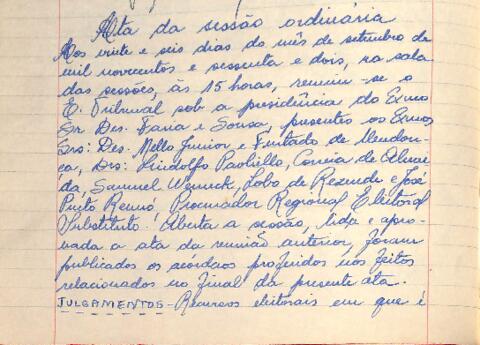 Ata da sessão ordinária
Aos vinte e seis dias do mês de setembro de
mil novecentos e sessenta e dois, na sala
das sessões, às 15 horas, reuniu-se o
E. Tribunal sob a presidência do Exmo
Sr. Des. Faria e Sousa, presentes os Exmos
Srs: Des. Mello Junior e Furtado de Mendon-
ça, Drs: Lindolfo Paoliello, Correia de Almei
da, Samuel Werneck, Lobo de Rezende e José
Pinto Rennó, Procurador Regional Eleitoral
Substituto. Aberta a sessão, lida e apro-
vada a ata da reunião anterior, foram
publicados os acórdãos proferidos nos feitos
relacionados no final da presente ata.
JULGAMENTOS - Recursos eleitorais em que é